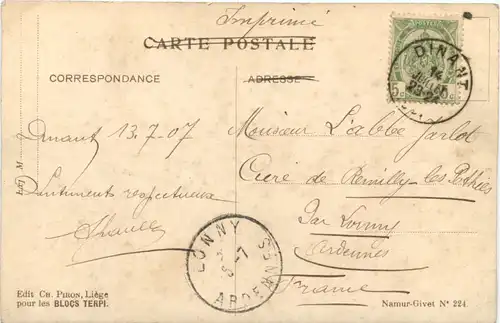 Imprimé
CARTE POSTALE
CORRESPONDANCE
ADRESSE
5c
DINANT
14
Dinant 13.7-07
Sentiments respectueux
Monsieur L'abbé
Curé de Remilly-les-Pothées
par Lonny
Ardennes
France
LONNY
ARDENNES
Edit Ch. Piron, Liége
pour les BLOCS TERPI.
Namur-Givet Nº 224